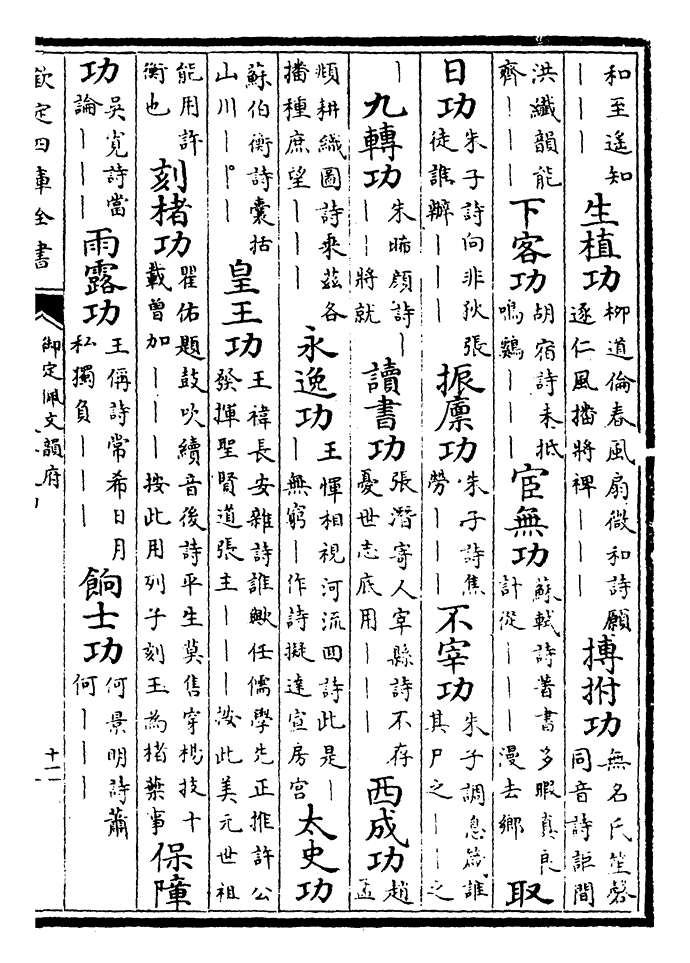 和至遥知｜｜｜生植功柳道倫春風扇微和詩願逐仁風播將禆｜｜｜搏拊功無名氏笙磬同音詩詎間
洪纖韻能齊｜｜｜下客功胡宿詩未抵鳴鷄｜｜｜宦無功蘇軾詩著書多暇真良計從｜｜｜漫去鄉取
日功朱子詩向非狄張徒誰辦｜｜｜振廩功朱子詩焦勞｜｜｜不宰功朱子調息箴誰其尸之｜｜之
｜九轉功朱晞顔詩｜｜｜將就讀書功張潛寄人宰縣詩不存憂世志底用｜｜｜西成功趙孟
頫耕織圖詩乘茲各播種庶望｜｜｜永逸功王惲相視河流回詩此是｜｜無窮｜作詩擬達宣房宫太史功
蘇伯衡詩囊括山川｜｜｜皇王功王禕長安雜詩誰歟任儒學先正推許公發揮聖賢道張主｜｜｜按此美元世祖
能用許衡也刻楮功瞿佑題鼓吹續音後詩平生莫售穿楊技十載曾加｜｜｜按此用列子刻玉為楮葉事保障
功吳寛詩當論｜｜｜雨露功王偁詩常希日月私獨負｜｜｜餉士功何景明詩蕭何｜｜｜
欽定四庫全書
御定佩文韻府
十一